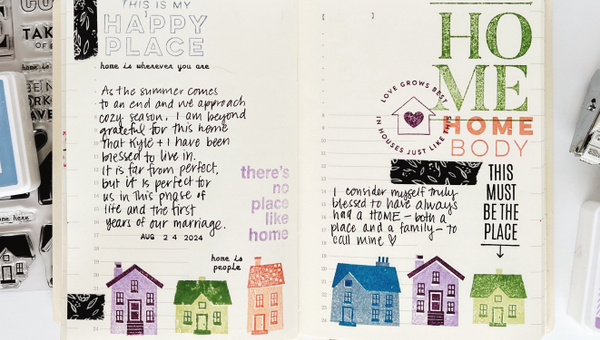 THIS IS MY
HAPPY
PLACE
home is wherever you are
As the summer comes
to an end and we approach
cozy season, I am beyond
grateful for this home
that Kyle + I have been
blessed to live in.
It is far from perfect,
but it is perfect for
us in this phase of
life and the first
years of our marriage.
AUG 24 2024
there's
no
place
like
home
home is
people
HO
ME
LOVE GROWS BEST
IN HOUSES JUST LIKE THIS
HOME
BODY
THIS
MUST
BE THE
PLACE
I consider myself truly
blessed to have always
had a HOME - both a
place and a family - to
call mine ♡